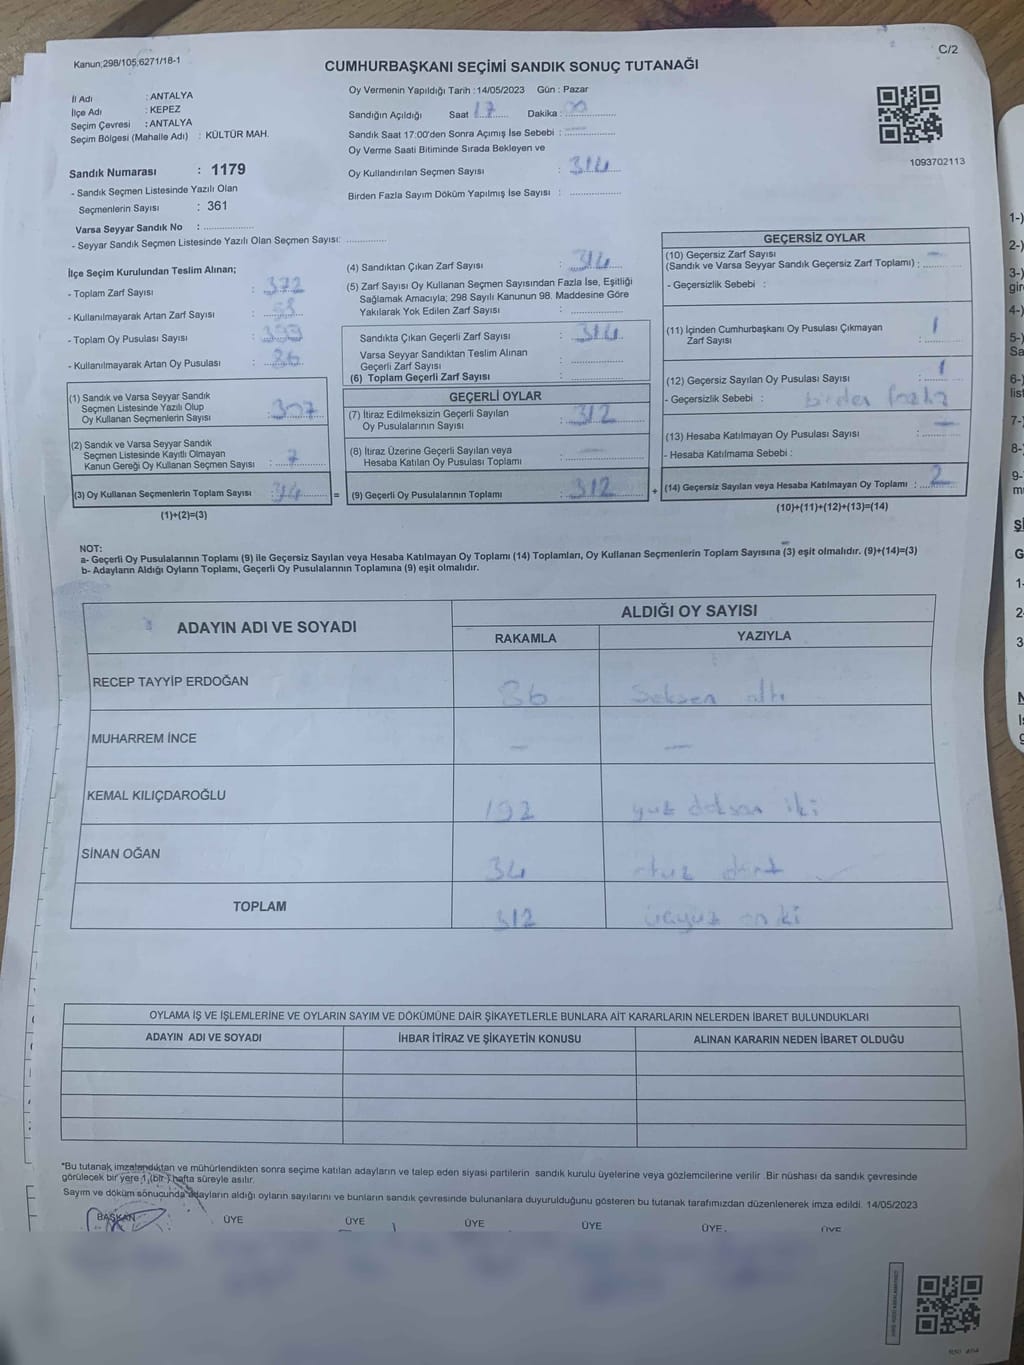 Kanun;298/105;6271/18-1
C/2
CUMHURBAŞKANI SEÇİMİ SANDIK SONUÇ TUTANAĞI
İl Adı : ANTALYA
İlçe Adı : KEPEZ
Seçim Çevresi : ANTALYA
Seçim Bölgesi (Mahalle Adı) : KÜLTÜR MAH.
Sandık Numarası : 1179
- Sandık Seçmen Listesinde Yazılı Olan
Seçmenlerin Sayısı : 361
Varsa Seyyar Sandık No : ..................
- Seyyar Sandık Seçmen Listesinde Yazılı Olan Seçmen Sayısı: .............
Oy Vermenin Yapıldığı Tarih : 14/05/2023 Gün : Pazar
Sandığın Açıldığı Saat 17 Dakika : 00
Sandık Saat 17:00'den Sonra Açılmış İse Sebebi :
Oy Verme Saati Bitiminde Sırada Bekleyen ve
Oy Kullandırılan Seçmen Sayısı : 314
Birden Fazla Sayım Döküm Yapılmış İse Sayısı : ..................
1093702113
İlçe Seçim Kurulundan Teslim Alınan;
- Toplam Zarf Sayısı : 372
- Kullanılmayarak Artan Zarf Sayısı : 58
- Toplam Oy Pusulası Sayısı : 399
- Kullanılmayarak Artan Oy Pusulası :
(1) Sandık ve Varsa Seyyar Sandık
Seçmen Listesinde Yazılı Olup
Oy Kullanan Seçmenlerin Sayısı : 307
(2) Sandık ve Varsa Seyyar Sandık
Seçmen Listesinde Kayıtlı Olmayan
Kanun Gereği Oy Kullanan Seçmen Sayısı : 7
(3) Oy Kullanan Seçmenlerin Toplam Sayısı : 314 =
(1)+(2)=(3)
(4) Sandıktan Çıkan Zarf Sayısı : 314
(5) Zarf Sayısı Oy Kullanan Seçmen Sayısından Fazla İse, Eşitliği
Sağlamak Amacıyla; 298 Sayılı Kanunun 98. Maddesine Göre
Yakılarak Yok Edilen Zarf Sayısı : ..................
Sandıkta Çıkan Geçerli Zarf Sayısı : 314
Varsa Seyyar Sandıktan Teslim Alınan
Geçerli Zarf Sayısı : ..................
(6) Toplam Geçerli Zarf Sayısı : ..................
GEÇERLİ OYLAR
(7) İtiraz Edilmeksizin Geçerli Sayılan
Oy Pusulalarının Sayısı : 312
(8) İtiraz Üzerine Geçerli Sayılan veya
Hesaba Katılan Oy Pusulası Toplamı : —
(9) Geçerli Oy Pusulalarının Toplamı : 312 +
GEÇERSİZ OYLAR
(10) Geçersiz Zarf Sayısı
(Sandık ve Varsa Seyyar Sandık Geçersiz Zarf Toplamı) : —
- Geçersizlik Sebebi :
(11) İçinden Cumhurbaşkanı Oy Pusulası Çıkmayan
Zarf Sayısı : 1
(12) Geçersiz Sayılan Oy Pusulası Sayısı : 1
- Geçersizlik Sebebi : birden fazla
(13) Hesaba Katılmayan Oy Pusulası Sayısı : —
- Hesaba Katılmama Sebebi :
(14) Geçersiz Sayılan veya Hesaba Katılmayan Oy Toplamı : 2
(10)+(11)+(12)+(13)=(14)
NOT:
a- Geçerli Oy Pusulalarının Toplamı (9) ile Geçersiz Sayılan veya Hesaba Katılmayan Oy Toplamı (14) Toplamları, Oy Kullanan Seçmenlerin Toplam Sayısına (3) eşit olmalıdır. (9)+(14)=(3)
b- Adayların Aldığı Oyların Toplamı, Geçerli Oy Pusulalarının Toplamına (9) eşit olmalıdır.
ADAYIN ADI VE SOYADI
ALDIĞI OY SAYISI
RAKAMLA YAZIYLA
RECEP TAYYİP ERDOĞAN 86 Seksen altı
MUHARREM İNCE — —
KEMAL KILIÇDAROĞLU 192 yüz doksan iki
SİNAN OĞAN 34 otuz dört
TOPLAM 312 üçyüz on iki
OYLAMA İŞ VE İŞLEMLERİNE VE OYLARIN SAYIM VE DÖKÜMÜNE DAİR ŞİKAYETLERLE BUNLARA AİT KARARLARIN NELERDEN İBARET BULUNDUKLARI
ADAYIN ADI VE SOYADI İHBAR İTİRAZ VE ŞİKAYETİN KONUSU ALINAN KARARIN NEDEN İBARET OLDUĞU
*Bu tutanak imzalandıktan ve mühürlendikten sonra seçime katılan adayların ve talep eden siyasi partilerin sandık kurulu üyelerine veya gözlemcilerine verilir. Bir nüshası da sandık çevresinde
görülecek bir yere 1 (bir ) hafta süreyle asılır.
Sayım ve döküm sonucunda adayların aldığı oyların sayılarını ve bunların sandık çevresinde bulunanlara duyurulduğunu gösteren bu tutanak tarafımızdan düzenlenerek imza edildi. 14/05/2023
BAŞKAN ÜYE ÜYE ÜYE ÜYE ÜYE ÜYE